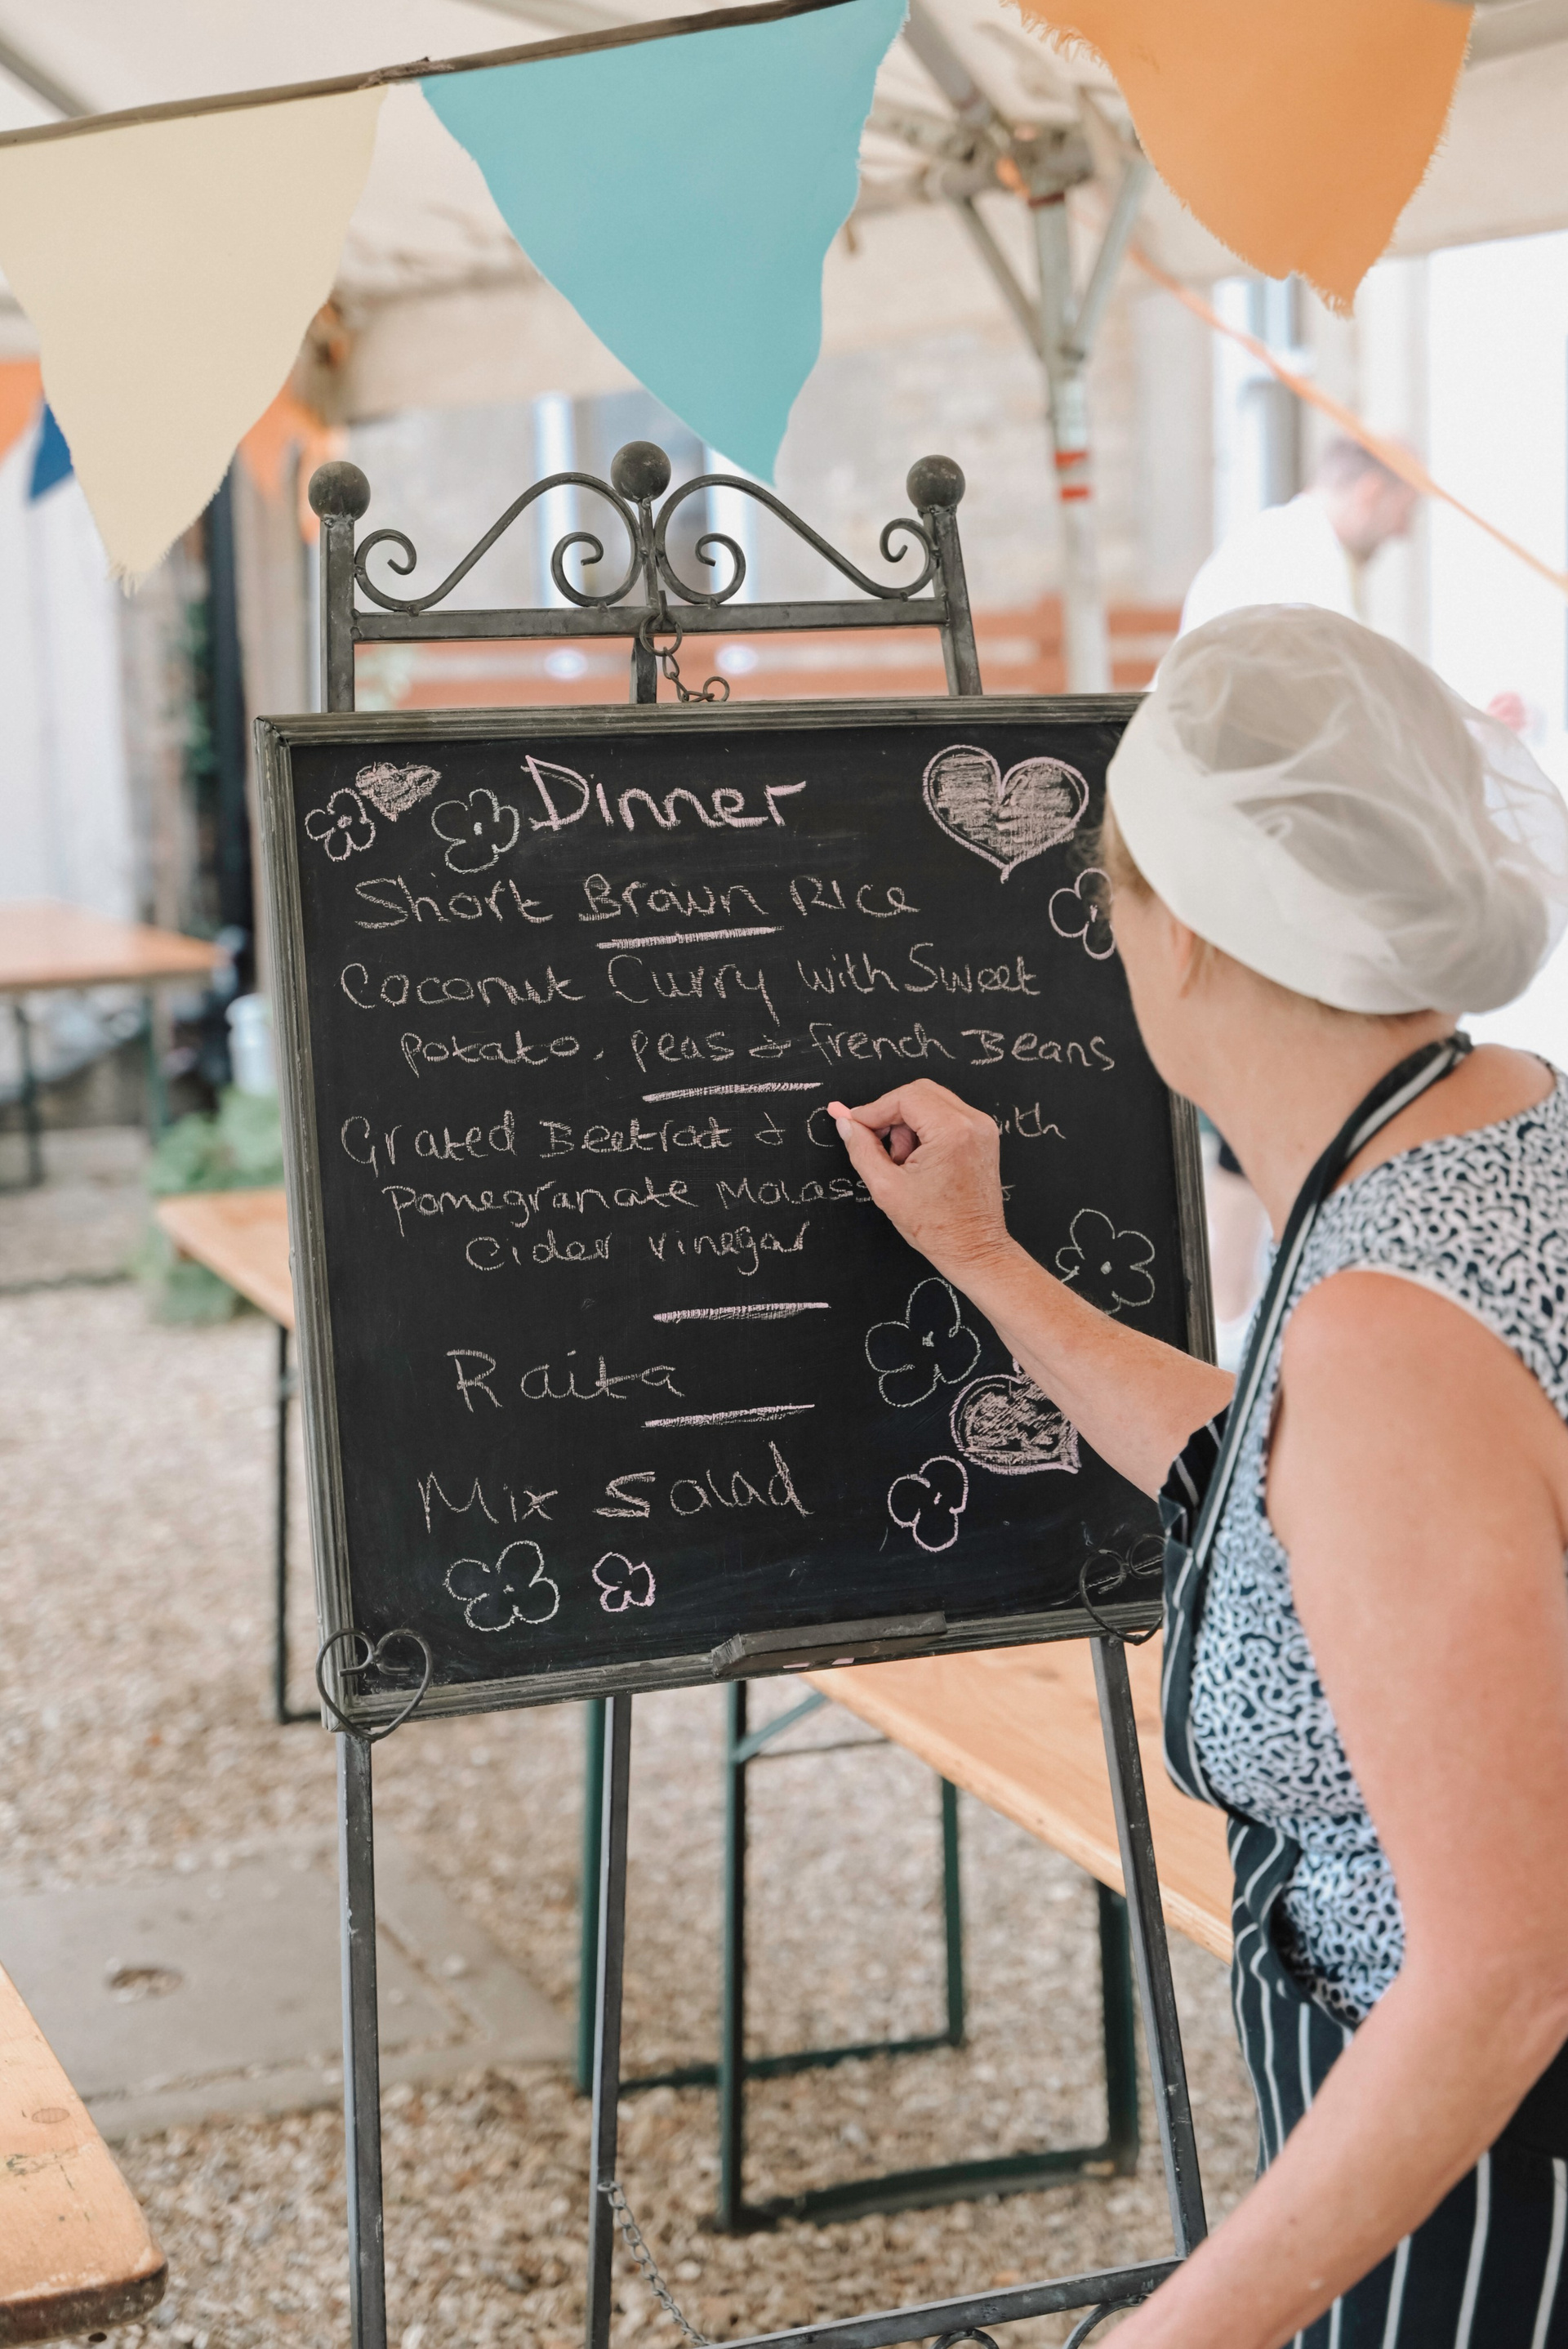 Dinner
Short Brown Rice
Coconut Curry with Sweet
potato, peas & French Beans
Grated Beetroot & with
Pomegranate Molass
Cider vinegar
Raita
Mix Salad